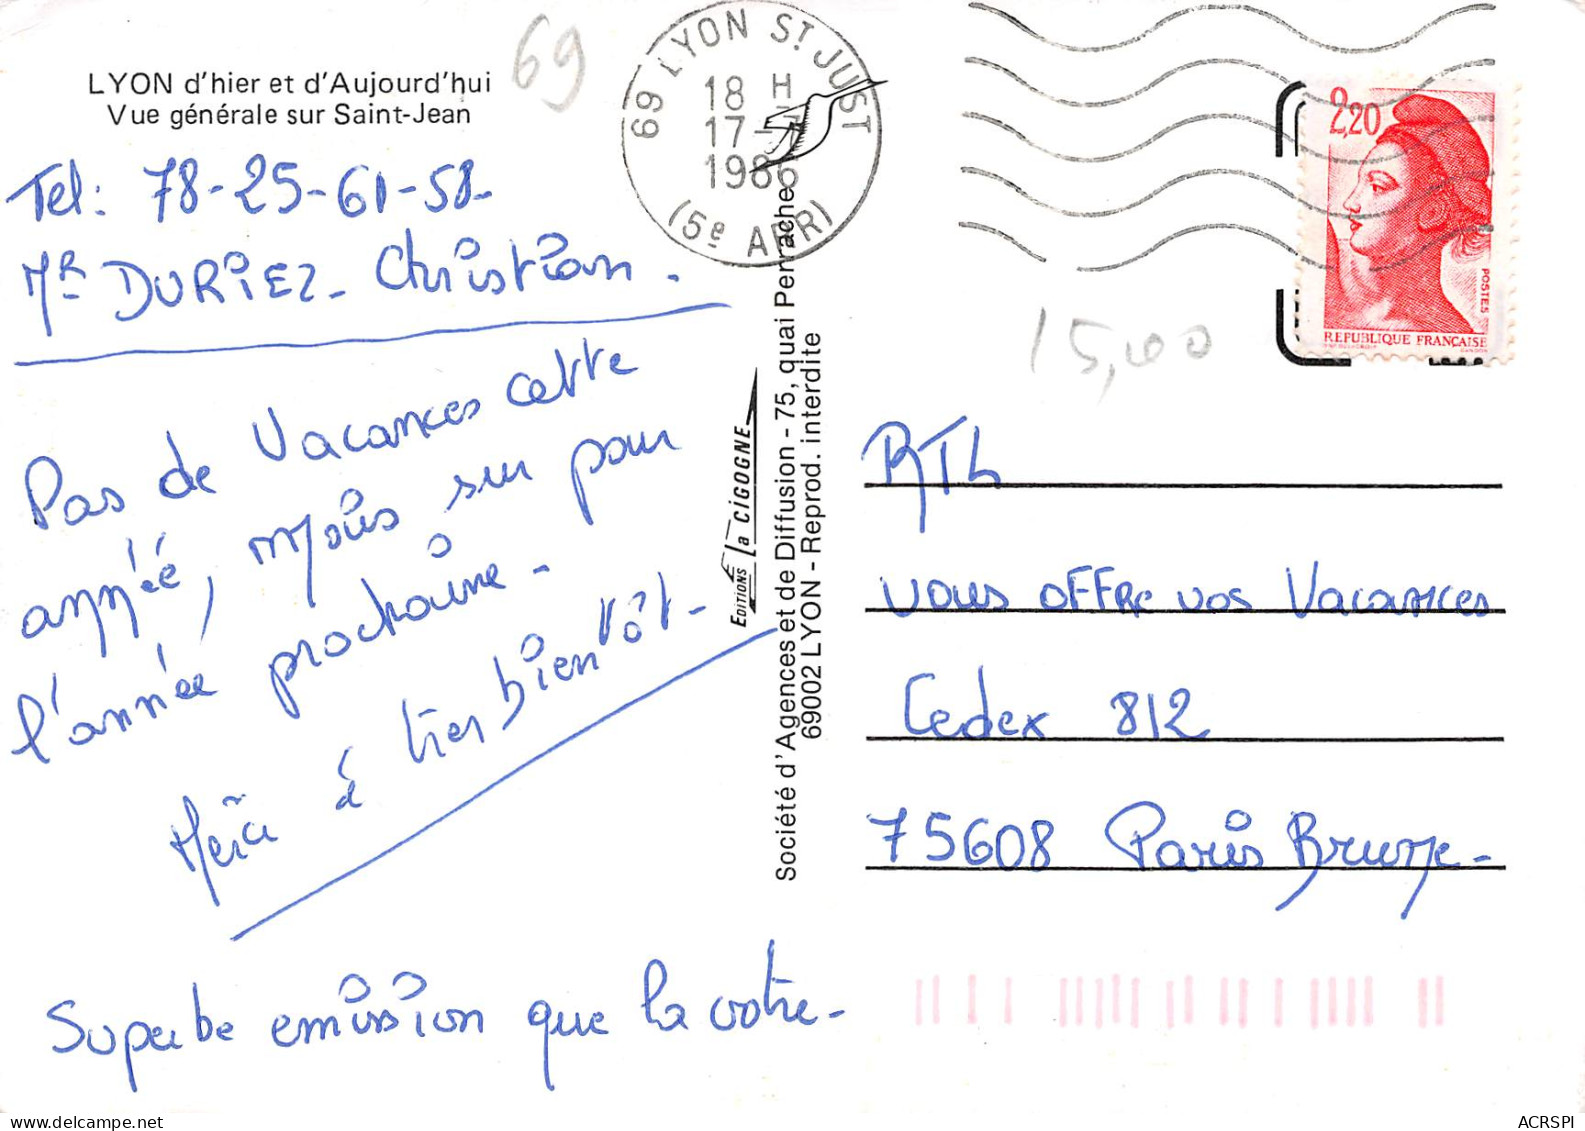 LYON d'hier et d'Aujourd'hui
Vue générale sur Saint-Jean
69
69 LYON ST JUST
18 H
17-7
1986
(5e ARR)
2,20
POSTES
REPUBLIQUE FRANÇAISE
15,00
Tel: 78-25-61-58-
Mr DURIEZ - Christian.
Pas de Vacances cette
année, mais sur pour
l'année prochaine -
Merci à très bientôt -
Superbe emission que la votre -
EDITIONS La CIGOGNE
Société d'Agences et de Diffusion - 75, quai Perrache
69002 LYON - Reprod. interdite
RTL
vous OFFRE vos Vacances
Cedex 812
75608 Paris Brune -
ACRSPI